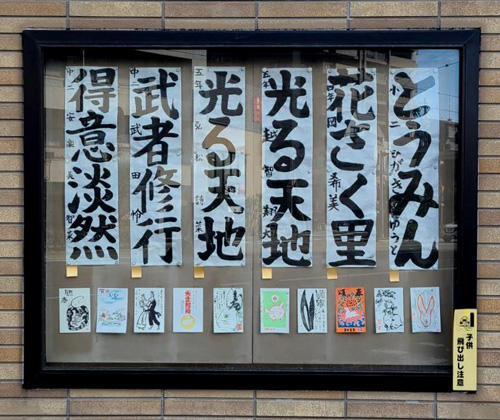 とうみん
小二
花さく里
希美
光る天地
五年
光る天地
五年
武者修行
武田怜
得意淡然
中二
子供
飛び出し注意